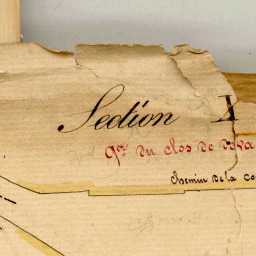 Section X
Qer du clos de
Chemin de la Co